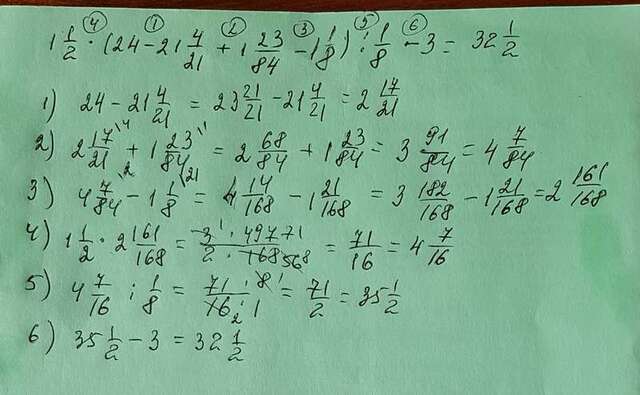 ④ ① ② ③ ⑤ ⑥
1 1/2 · (24 - 21 4/21 + 1 23/84 - 1 1/8) : 1/8 - 3 = 32 1/2
1) 24 - 21 4/21 = 23 21/21 - 21 4/21 = 2 17/21
2) 2 17/21 \4 + 1 23/84 \1 = 2 68/84 + 1 23/84 = 3 91/84 = 4 7/84
3) 4 7/84 \2 - 1 1/8 \21 = 4 14/168 - 1 21/168 = 3 182/168 - 1 21/168 = 2 161/168
4) 1 1/2 · 2 161/168 = 3 1 · 497 71/2 · 168 56 8 = 71/16 = 4 7/16
5) 4 7/16 : 1/8 = 71 · 8 1/16 2 · 1 = 71/2 = 35 1/2
6) 35 1/2 - 3 = 32 1/2